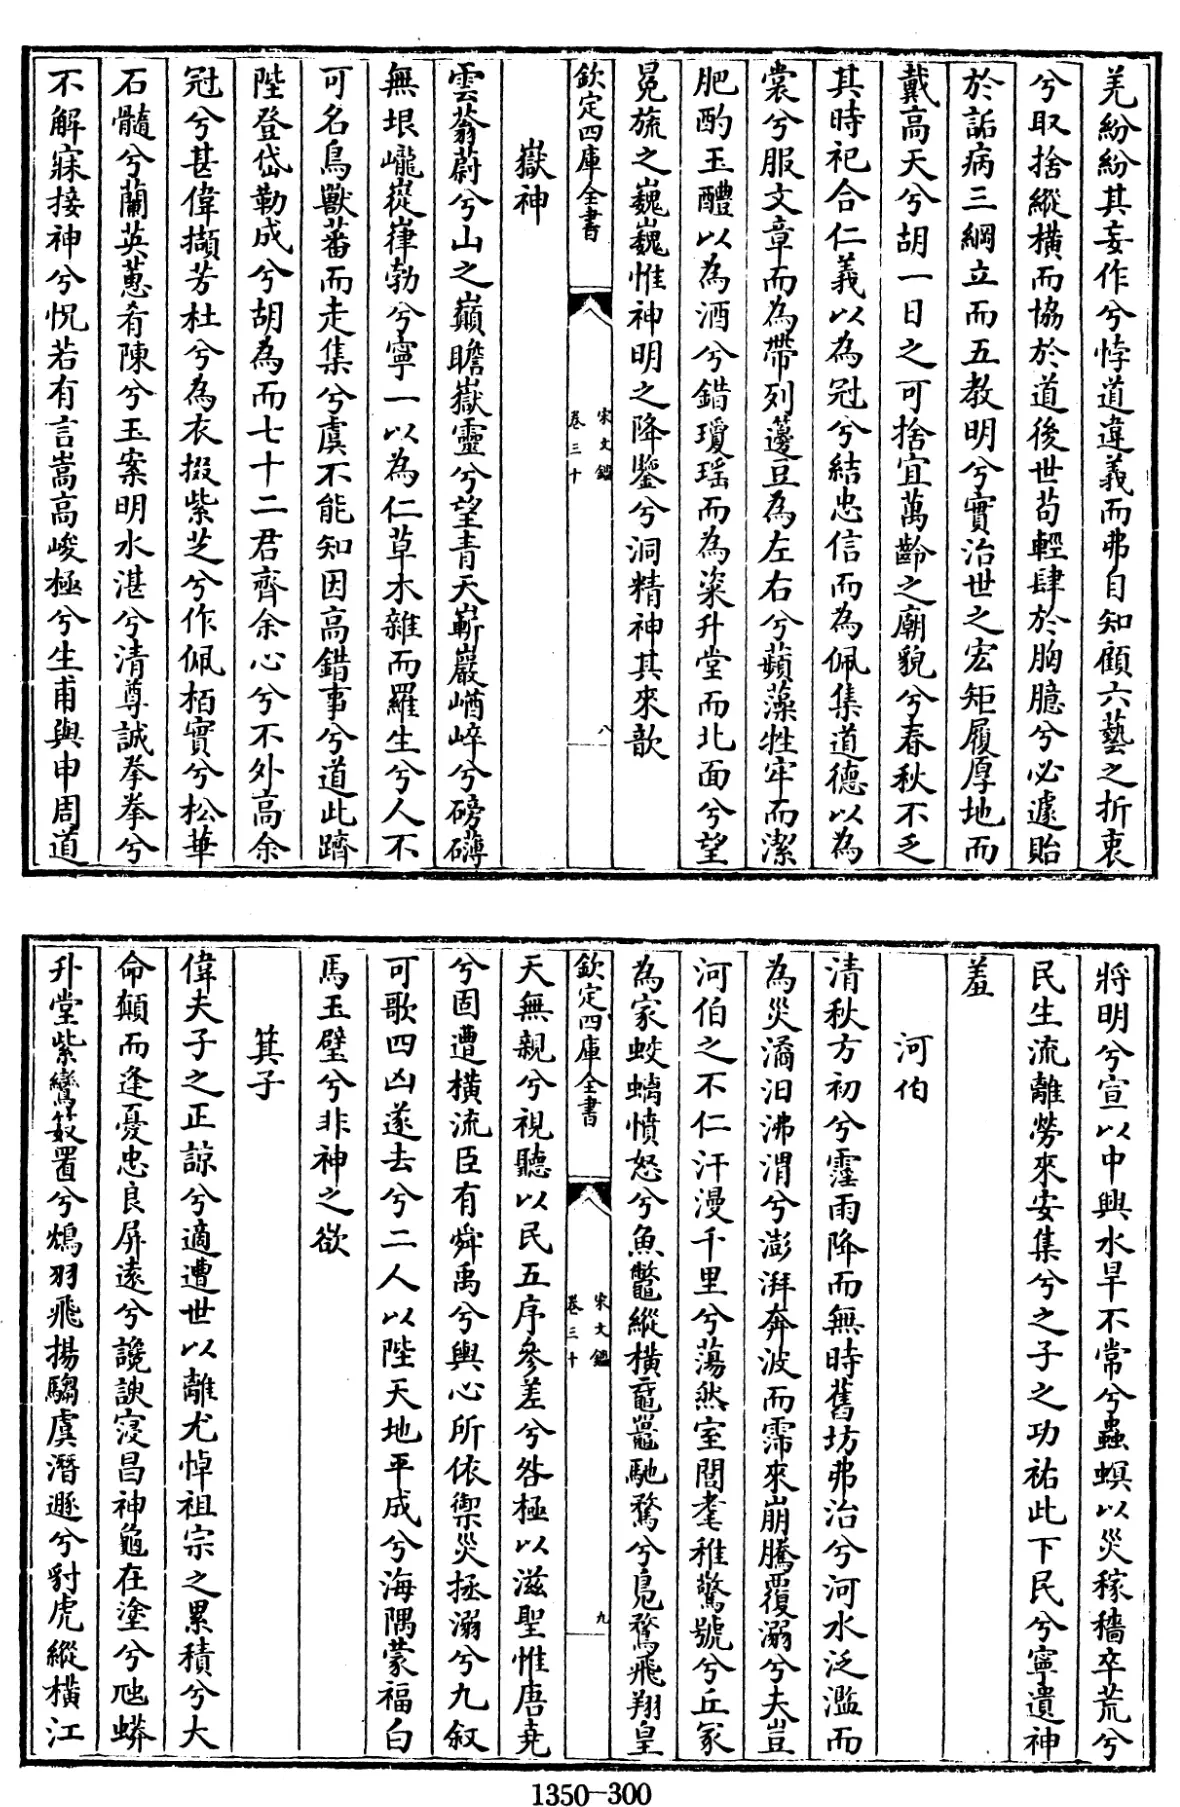 羌紛紛其妄作兮悖道違義而弗自知顧六藝之折衷
兮取捨縱橫而協於道後世苟輕肆於胸臆兮必遽貽
於詬病三綱立而五教明兮實治世之宏矩履厚地而
戴高天兮胡一日之可捨宜萬齡之廟貌兮春秋不乏
其時祀合仁義以為冠兮結忠信而為佩集道德以為
裳兮服文章而為帶列籩豆為左右兮蘋藻牲牢而潔
肥酌玉醴以為酒兮錯瓊瑤而為粢升堂而北面兮望
冕旒之巍巍惟神明之降鑒兮洞精神其來歆
欽定四庫全書
宋文鑑
卷三十
八
嶽神
雲蓊蔚兮山之巔瞻嶽靈兮望青天嶄巖崷崒兮磅礴
無垠巃嵸嵂勃兮寧一以為仁草木雜而羅生兮人不
可名鳥獸蕃而走集兮虞不能知因高錯事兮道此躋
陛登岱勒成兮胡為而七十二君齊余心兮不外高余
冠兮甚偉擷芳杜兮為衣掇紫芝兮作佩栢實兮松華
石髓兮蘭英蕙肴陳兮玉案明水湛兮清尊誠拳拳兮
不解寐接神兮怳若有言嵩高峻極兮生甫與申周道
將明兮宣以中興水旱不常兮蟲螟以災稼穡卒荒兮
民生流離勞來安集兮之子之功祐此下民兮寧遺神
羞
河伯
清秋方初兮霪雨降而無時舊坊弗治兮河水泛濫而
為災潏汨沸渭兮澎湃奔波而霈來崩騰覆溺兮夫豈
河伯之不仁汗漫千里兮蕩然室閭耄稚驚號兮丘冢
為家蛟螭憤怒兮魚鼈縱橫黿鼉馳騖兮鳧鶩飛翔皇
欽定四庫全書
宋文鑑
卷三十
九
天無親兮視聽以民五序參差兮咎極以滋聖惟唐堯
兮固遭橫流臣有舜禹兮輿心所依禦災拯溺兮九叙
可歌四凶遂去兮二人以陛天地平成兮海隅蒙福白
馬玉璧兮非神之欲
箕子
偉夫子之正諒兮適遭世以離尤悼祖宗之累積兮大
命顛而逢憂忠良屏遠兮讒諛寖昌神龜在塗兮虺蟒
升堂紫鸞笯罝兮鴆羽飛揚騶虞潛遯兮豺虎縱橫江
1350-300